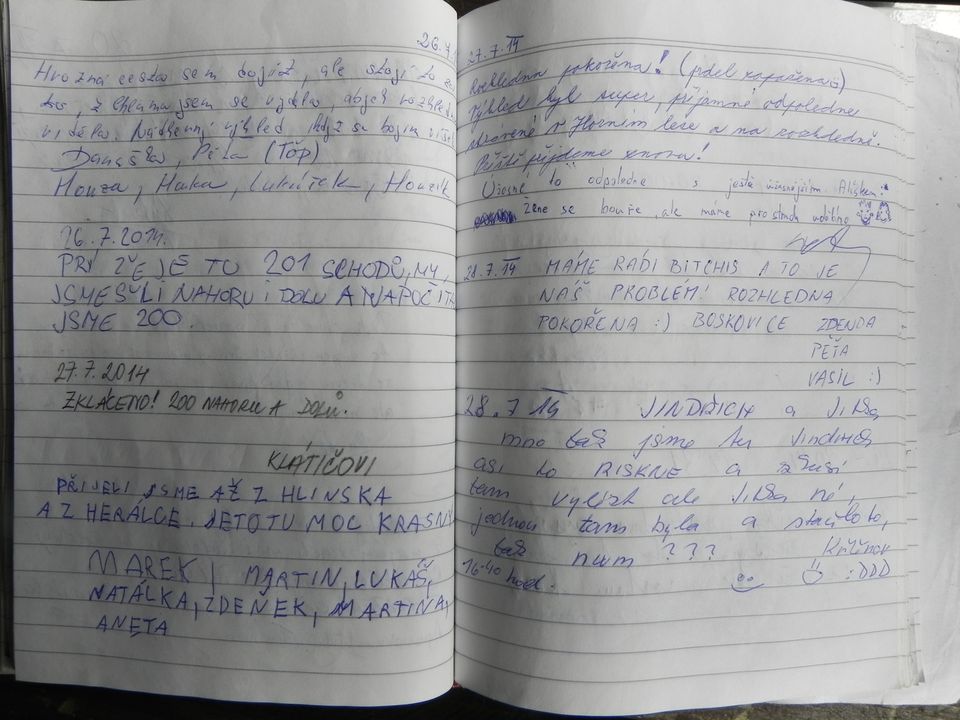 26.7.
Hrozná cesta sem bojuž, ale stojí to za
to, jsem se
viděla. Nádherný výhled, když se bojím
Danuška, Péťa (Tőp)
Honza, Hanka, Lukášek, Honzík
26.7.2014.
PRÝ ŽE JE TU 201 SCHODŮ, MY
JSME ŠLI NAHORU I DOLU A NAPOČÍTA
JSME 200.
27.7.2014
ZKLÁCENO! 200 NAHORU A DOLŮ.
KLATIČOVI
PŘIJELI JSME AŽ Z HLINSKA
A Z HERALCE. JETO TU MOC KRASNÝ
MAREK, MARTIN, LUKAŠ,
NATÁLKA, ZDENEK, MARTINA,
ANETA
27.7.14
Rozhledna pokořena! (prdel zapařena)
Výhled byl super, příjemné odpoledne
strávené v Horním lese a na rozhledně.
Příště přijdeme znova!
Úžasné to odpoledne s ještě úžasnějším
Žene se bouře, ale máme pro strach uděláno
28.7.14 MÁME RÁDI BITCHIS A TO JE
NÁŠ PROBLÉM! ROZHLEDNA
POKOŘENA :) BOSKOVICE ZDENDA
PÉŤA
VASIL :)
28.7 14 JINDŘICH a JIŘKA
mno tak jsme tu Jindřich
asi to RISKNE a zkusí
tam vylízt ale Jiřka né,
jednou tam byla a stačilo to,
tak num ???
16-40 hod. :DDD